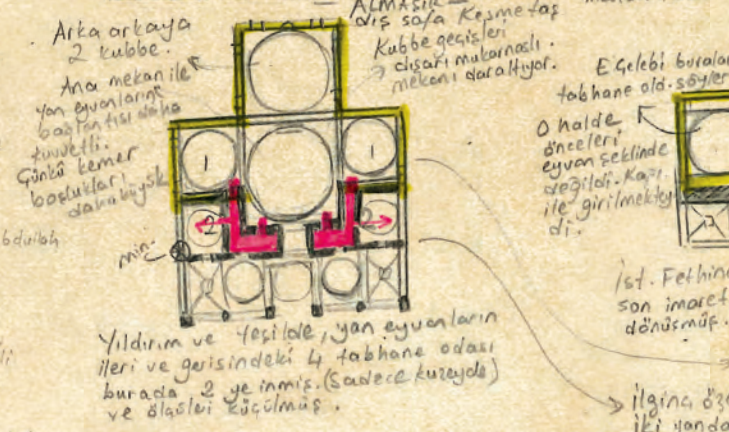 Arka arkaya
2 kubbe.
Ana mekan ile
yan eyvanların
bağlantısı daha
kuvvetli.
Çünkü kemer
boşlukları
daha büyük
— ALMAŞIK —
dış sofa Kesme taş
Kubbe geçişleri
dışarı mukarnaslı.
mekanı daraltıyor.
E Çelebi buralar
tabhane old. söyler
O halde
önceleri
eyvan şeklinde
değildi. Kapı
ile girilmektey
di.
1
1
2
2
min.
Yıldırım ve Yeşilde, yan eyvanların
ileri ve gerisindeki 4 tabhane odası
burada 2 ye inmiş. (Sadece kuzeyde)
ve ölçüleri küçülmüş.
İst. Fethind
son imaret
dönüşmüş.
ilginç öz
iki yanda